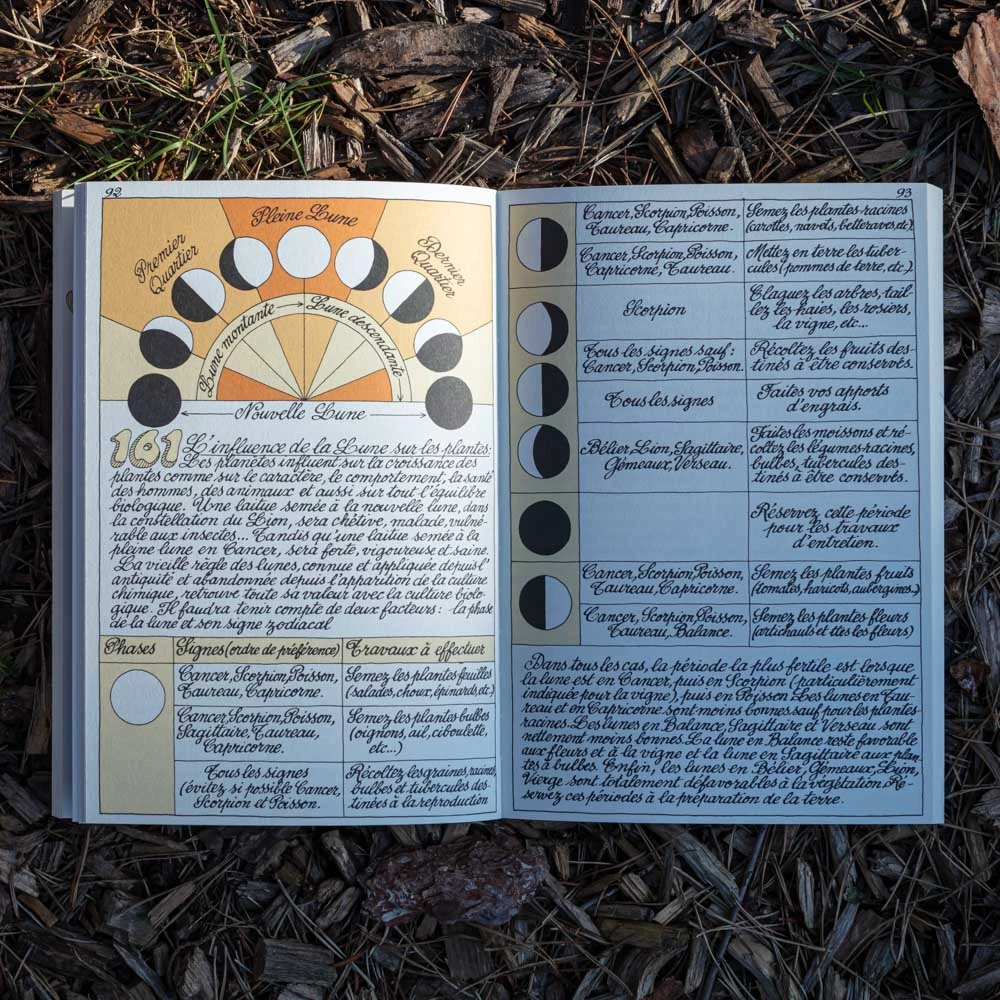 92
Pleine Lune
Premier
Quartier
Dernier
Quartier
Lune montante → Lune descendante
Nouvelle Lune
161 L'influence de la Lune sur les plantes:
Les planètes influent sur la croissance des
plantes comme sur le caractère, le comportement, la santé
des hommes, des animaux et aussi sur tout l'équilibre
biologique. Une laitue semée à la nouvelle lune, dans
la constellation du Lion, sera chétive, malade, vulné-
rable aux insectes... Tandis qu'une laitue semée à la
pleine lune en Cancer, sera forte, vigoureuse et saine.
La vieille règle des lunes, connue et appliquée depuis l'
antiquité et abandonnée depuis l'apparition de la culture
chimique, retrouve toute sa valeur avec la culture biolo-
gique. Il faudra tenir compte de deux facteurs: la phase
de la lune et son signe zodiacal
Phases Signes (ordre de préférence) Travaux à effectuer
Cancer, Scorpion, Poisson,
Taureau, Capricorne.
Semez les plantes feuilles
(salades, choux, épinards, etc.)
Cancer, Scorpion, Poisson,
Sagittaire, Taureau,
Capricorne.
Semez les plantes bulbes
(oignons, ail, ciboulette,
etc...)
Tous les signes
(évitez si possible Cancer,
Scorpion et Poisson.
Récoltez les graines, racines,
bulbes et tubercules des-
tinées à la reproduction
93
Cancer, Scorpion, Poisson,
Taureau, Capricorne.
Semez les plantes-racines
(carottes, navets, betteraves, etc)
Cancer, Scorpion, Poisson,
Capricorne, Taureau.
Mettez en terre les tuber-
cules (pommes de terre, etc.)
Scorpion
Elaguez les arbres, tail-
lez les haies, les rosiers,
la vigne, etc...
Tous les signes sauf:
Cancer, Scorpion, Poisson.
Récoltez les fruits des-
tinés à être conservés.
Tous les signes
Faites vos apports
d'engrais.
Bélier, Lion, Sagittaire,
Gémeaux, Verseau.
Faites les moissons et ré-
coltez les légumes-racines,
bulbes, tubercules des-
tinés à être conservés.
Réservez cette période
pour les travaux
d'entretien.
Cancer, Scorpion, Poisson,
Taureau, Capricorne.
Semez les plantes fruits
(tomates, haricots, aubergines..)
Cancer, Scorpion, Poisson,
Taureau, Balance.
Semez les plantes fleurs
(artichauts et ttes les fleurs)
Dans tous les cas, la période la plus fertile est lorsque
la lune est en Cancer, puis en Scorpion (particulièrement
indiquée pour la vigne), puis en Poisson. Les lunes en Tau-
reau et en Capricorne sont moins bonnes sauf pour les plantes-
racines. Les lunes en Balance, Sagittaire et Verseau sont
nettement moins bonnes. La lune en Balance reste favorable
aux fleurs et à la vigne et la lune en Sagittaire aux plan-
tes à bulbes. Enfin, les lunes en Bélier, Gémeaux, Lion,
Vierge sont totalement défavorables à la végétation. Ré-
servez ces périodes à la préparation de la terre.